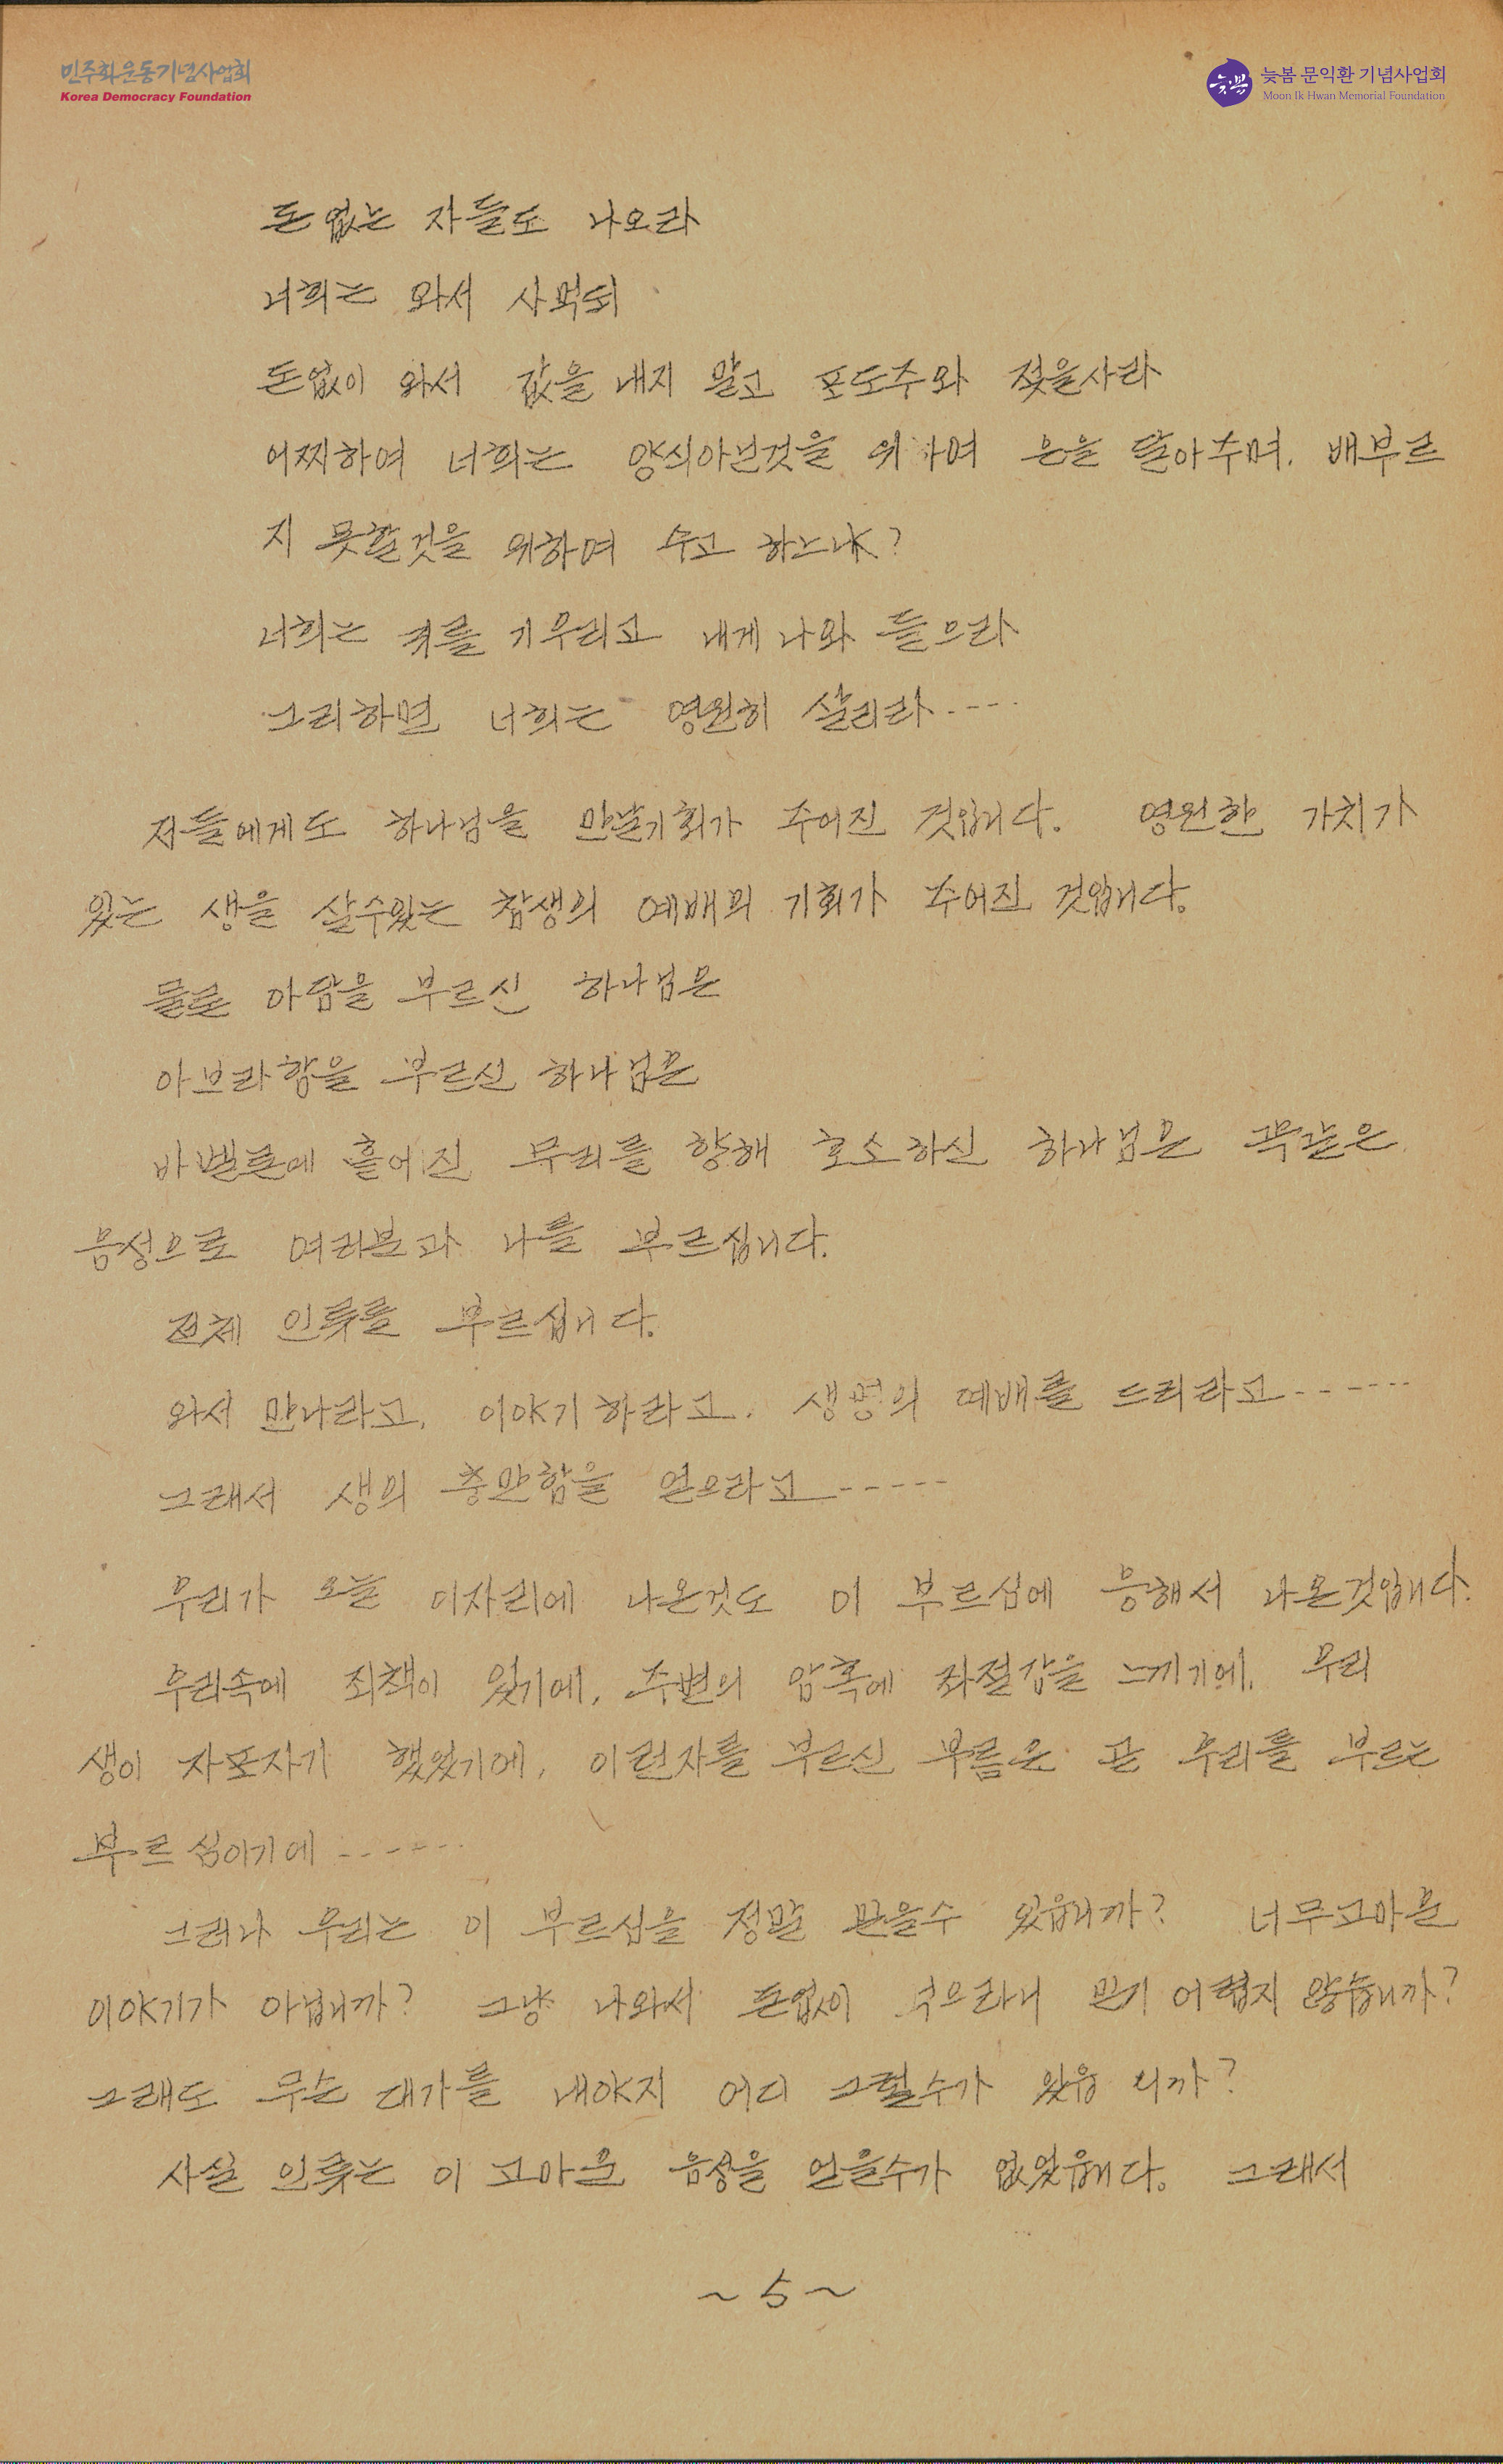 민주화운동기념사업회
Korea Democracy Foundation
늦봄
늦봄 문익환 기념사업회
Moon Ik Hwan Memorial Foundation
돈없는 자들도 나오라
너희는 와서 사먹되
돈없이 와서 값을 내지 말고 포도주와 젖을사라
어찌하여 너희는 양식아닌것을 위하여 은을 달아주며, 배부르
지 못할것을 위하여 수고 하느냐?
너희는 귀를 기우리고 내게 나와 들으라
그리하면 너희는 영원히 살리라----
저들에게도 하나님을 만날기회가 주어진 것입니다. 영원한 가치가
있는 생을 살수있는 참생의 예배의 기회가 주어진 것입니다.
아담을 부르신 하나님은
아브라함을 부르신 하나님은
바벨론에 흩어진 무리를 향해 호소하신 하나님은 꼭같은
음성으로 여러분과 나를 부르십니다.
전체 인류를 부르십니다.
와서 만나라고, 이야기하라고, 생명의 예배를 드리라고------
그래서 생의 충만함을 얻으라고-----
우리가 오늘 이자리에 나온것도 이 부르심에 응해서 나온것입니다.
우리속에 죄책이 있기에, 주변의 암흑에 좌절감을 느끼기에, 우리
생이 자포자기 했었기에, 이런자를 부르신 부름은 곧 우리를 부르는
부르심이기에------
그러나 우리는 이 부르심을 정말 믿을수 있읍니까? 너무고마운
이야기가 아닙니까? 그냥 나와서 돈없이 먹으라니 믿기 어렵지 않습니까?
그래도 무슨 대가를 내야지 어디 그럴수가 있읍니까?
사실 인류는 이 고마운 음성을 얻을수가 없었읍니다. 그래서
~5~